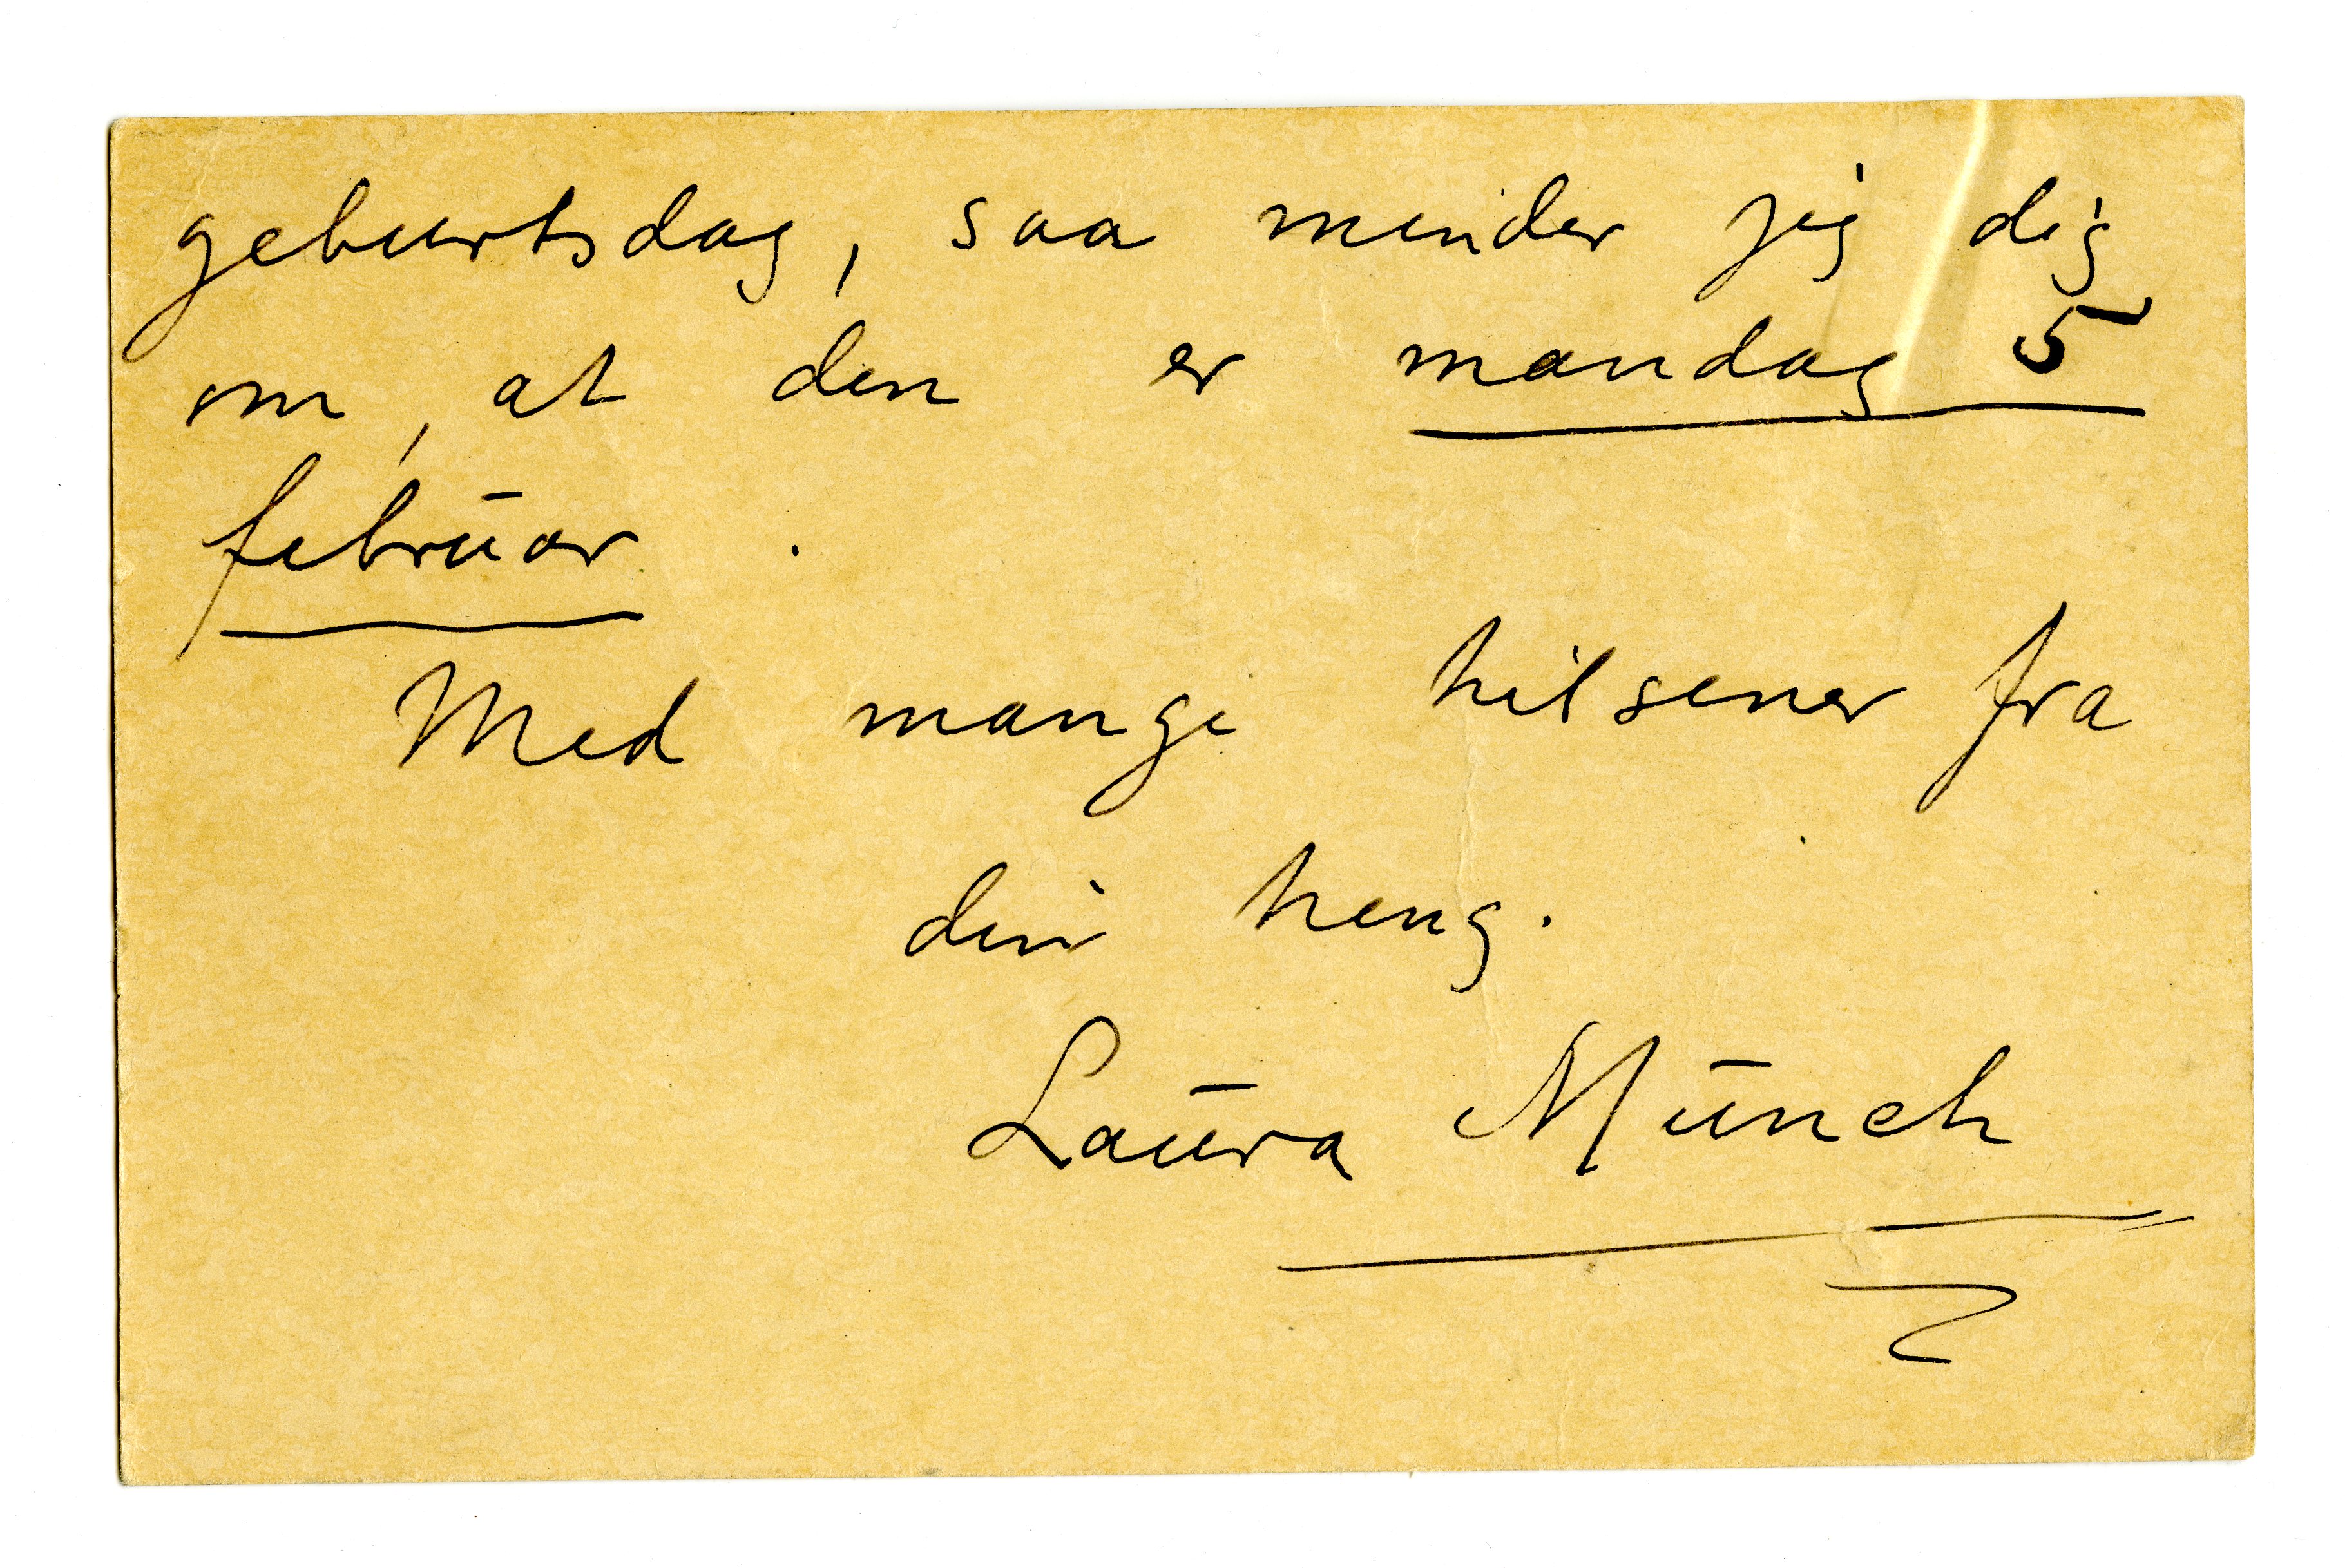 geburtsdag, saa minder jeg dig
om, at den er mandag 5
februar.
Med mange hilsener fra
din heng.
Laura Munch